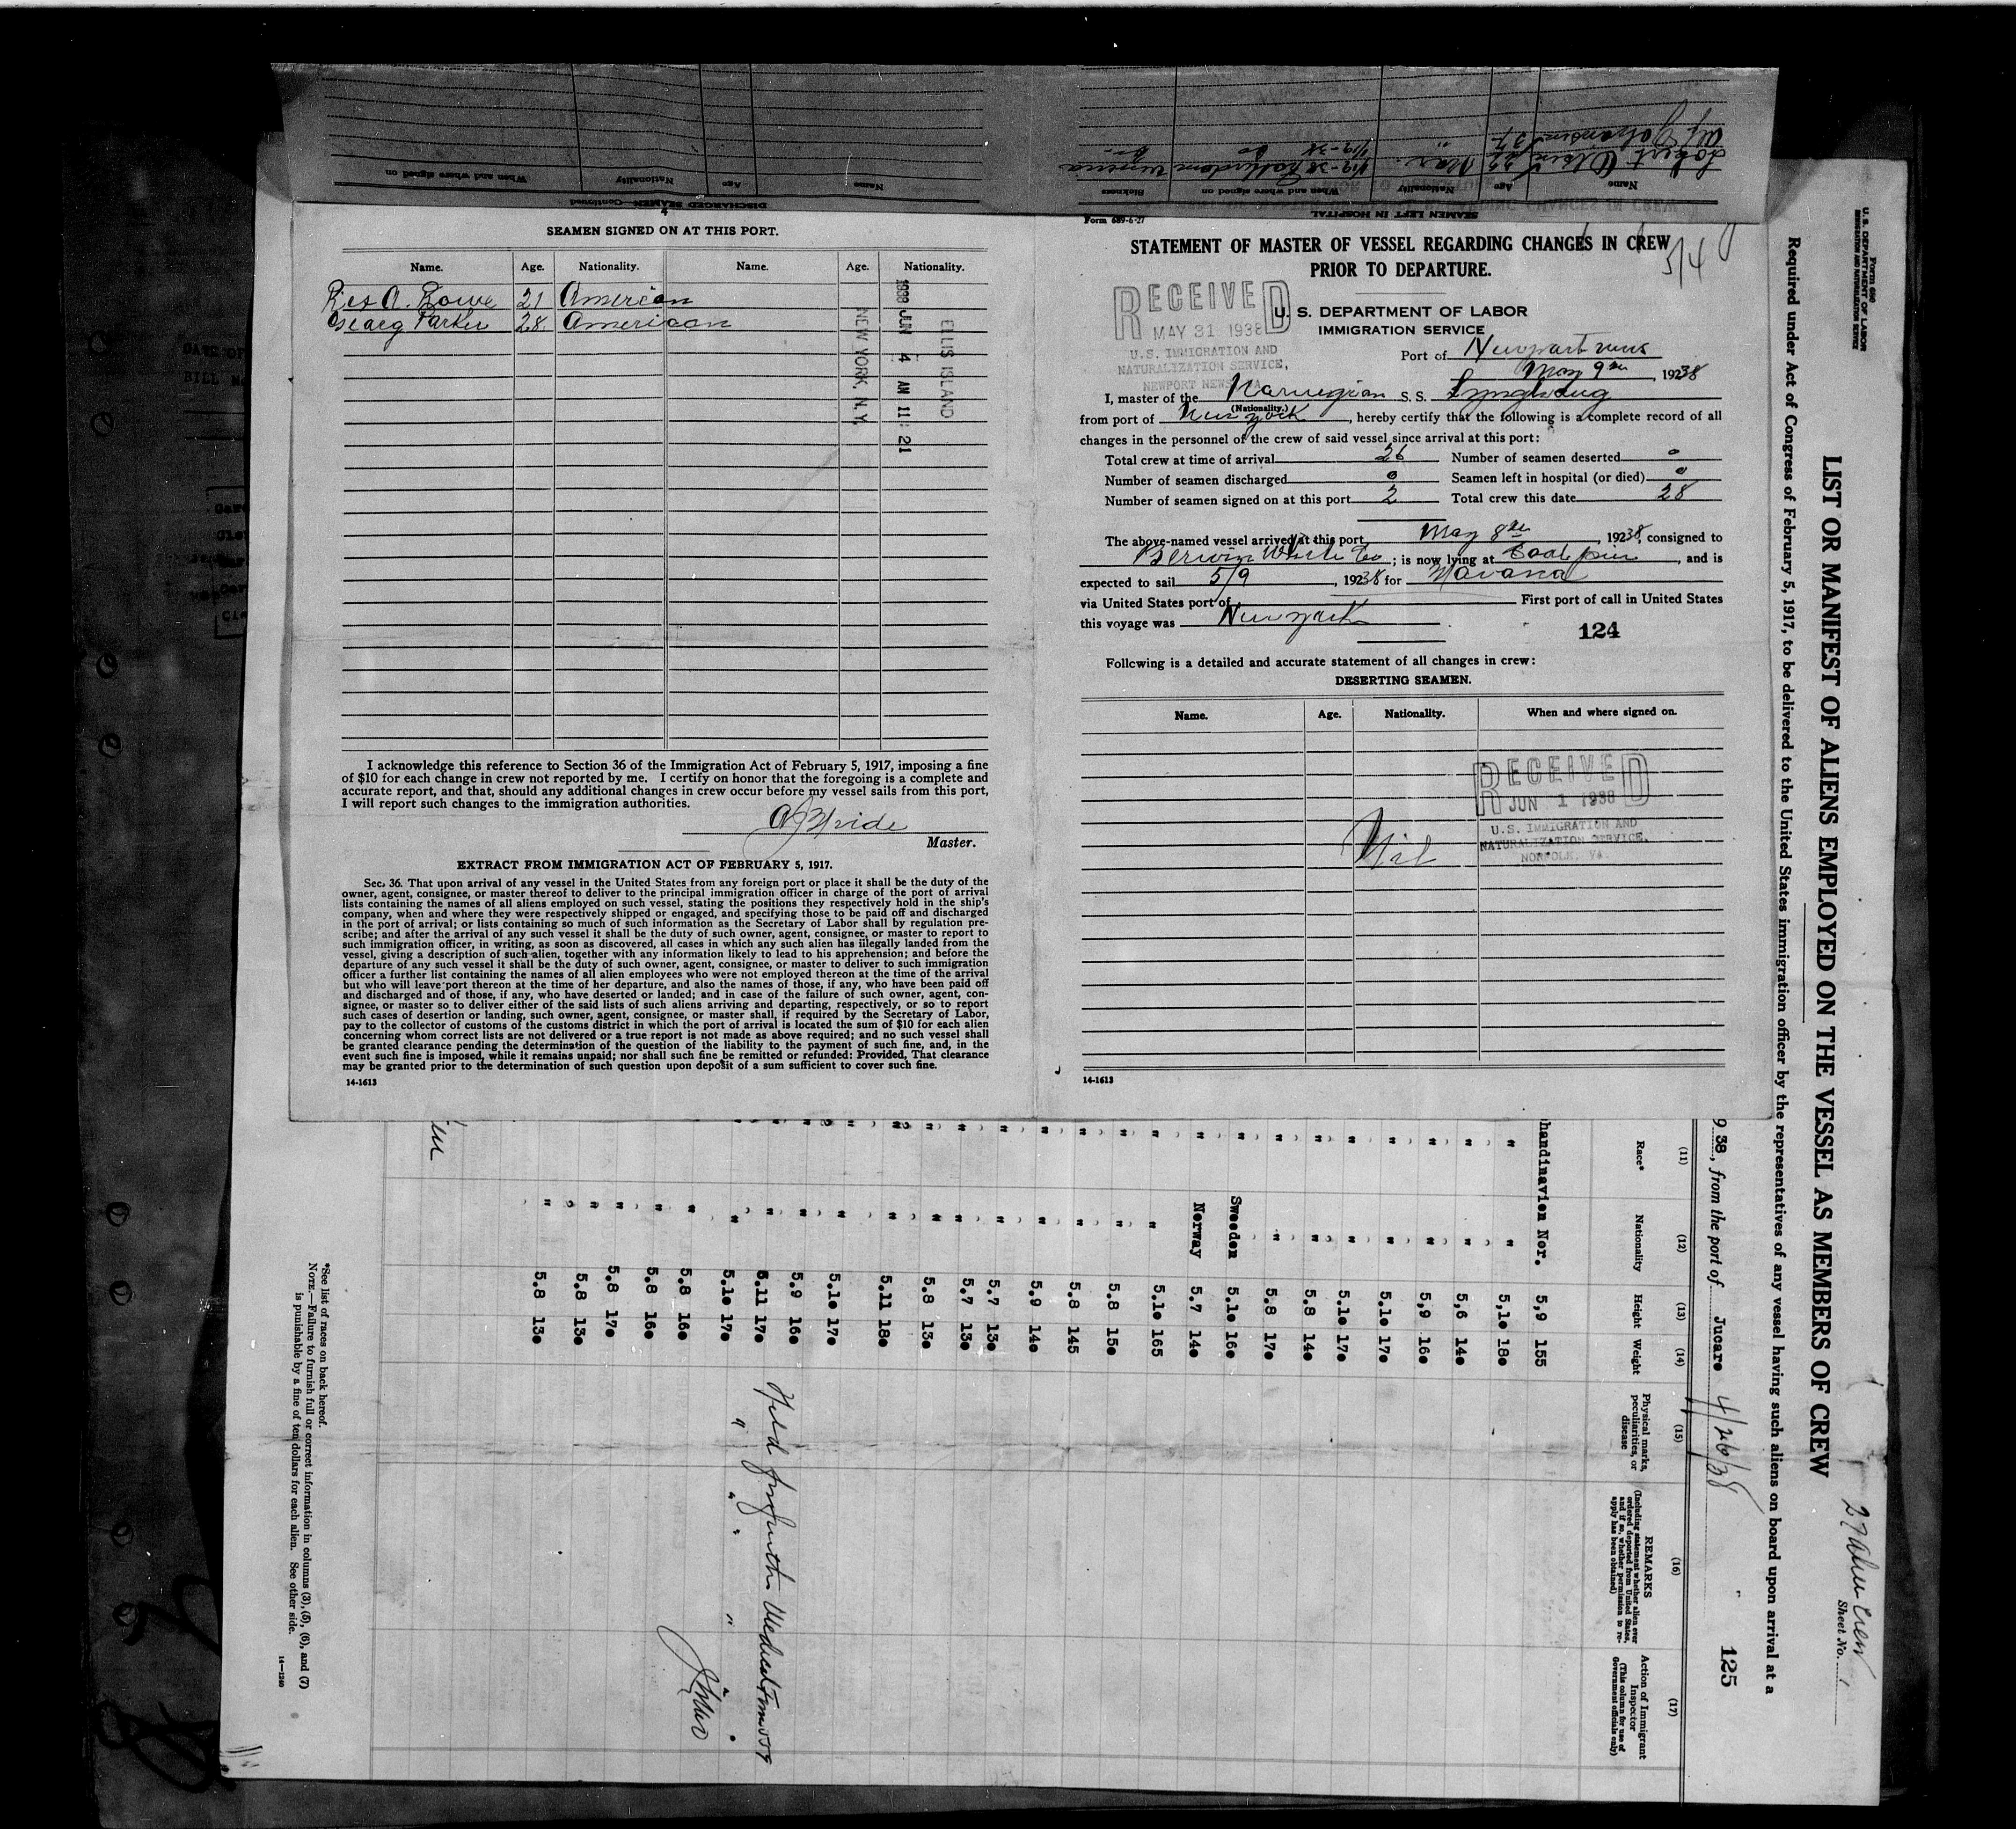 SEAMEN SIGNED ON AT THIS PORT.
Name. Age. Nationality. Name. Age. Nationality.
Rex A. Rowe 21 American
Georg Parker 28. American
1938 JUN 4 AM 11:21
ELLIS ISLAND
NEW YORK, N.Y.
I acknowledge this reference to Section 36 of the Immigration Act of February 5, 1917, imposing a fine
of $10 for each change in crew not reported by me. I certify on honor that the foregoing is a complete and
accurate report, and that, should any additional changes in crew occur before my vessel sails from this port,
I will report such changes to the immigration authorities.
Master.
EXTRACT FROM IMMIGRATION ACT OF FEBRUARY 5, 1917.
Sec. 36. That upon arrival of any vessel in the United States from any foreign port or place it shall be the duty of the
owner, agent, consignee, or master thereof to deliver to the principal immigration officer in charge of the port of arrival
lists containing the names of all aliens employed on such vessel, stating the positions they respectively hold in the ship's
company, when and where they were respectively shipped or engaged, and specifying those to be paid off and discharged
in the port of arrival; or lists containing so much of such information as the Secretary of Labor shall by regulation pre-
scribe; and after the arrival of any such vessel it shall be the duty of such owner, agent, consignee, or master to report to
such immigration officer, in writing, as soon as discovered, all cases in which any such alien has illegally landed from the
vessel, giving a description of such alien, together with any information likely to lead to his apprehension; and before the
departure of any such vessel it shall be the duty of such owner, agent, consignee, or master to deliver to such immigration
officer a further list containing the names of all alien employees who were not employed thereon at the time of the arrival
but who will leave port thereon at the time of her departure, and also the names of those, if any, who have been paid off
and discharged and of those, if any, who have deserted or landed; and in case of the failure of such owner, agent, con-
signee, or master so to deliver either of the said lists of such aliens arriving and departing, respectively, or so to report
such cases of desertion or landing, such owner, agent, consignee, or master shall, if required by the Secretary of Labor,
pay to the collector of customs of the customs district in which the port of arrival is located the sum of $10 for each alien
concerning whom correct lists are not delivered or a true report is not made as above required; and no such vessel shall
be granted clearance pending the determination of the question of the liability to the payment of such fine, and, in the
event such fine is imposed, while it remains unpaid; nor shall such fine be remitted or refunded: Provided, That clearance
may be granted prior to the determination of such question upon deposit of a sum sufficient to cover such fine.
14-1613
DISCHARGED SEAMEN—Continued
Name Age Nationality When and where signed on
SEAMEN LEFT IN HOSPITAL
Name Age Nationality When and where signed on Sickness
Form 689-6-27
STATEMENT OF MASTER OF VESSEL REGARDING CHANGES IN CREW
PRIOR TO DEPARTURE.
5/4
RECEIVED
MAY 31 1938
U.S. IMMIGRATION AND
NATURALIZATION SERVICE,
NEWPORT NEWS, VA.
U. S. DEPARTMENT OF LABOR
IMMIGRATION SERVICE
Port of Newport news
May 9th, 1938
I, master of the Norwegian S. S. Lynghaug
(Nationality.)
from port of New york, hereby certify that the following is a complete record of all
changes in the personnel of the crew of said vessel since arrival at this port:
Total crew at time of arrival 26 Number of seamen deserted 0
Number of seamen discharged 0 Seamen left in hospital (or died) 0
Number of seamen signed on at this port 2 Total crew this date 28
The above-named vessel arrived at this port May 8th, 1938, consigned to
Berwin White Co; is now lying at Coal pier, and is
expected to sail 5/9, 1938 for Havana
via United States port of First port of call in United States
this voyage was New york
124
Following is a detailed and accurate statement of all changes in crew:
DESERTING SEAMEN.
Name. Age. Nationality. When and where signed on.
RECEIVED
JUN 1 1938
U.S. IMMIGRATION AND
NATURALIZATION SERVICE,
NORFOLK, VA.
Nil
14-1613
Form 680
U. S. DEPARTMENT OF LABOR
IMMIGRATION AND NATURALIZATION SERVICE
Sheet No. 1
LIST OR MANIFEST OF ALIENS EMPLOYED ON THE VESSEL AS MEMBERS OF CREW
Required under Act of Congress of February 5, 1917, to be delivered to the United States immigration officer by the representatives of any vessel having such aliens on board upon arrival at a
125
9 38, from the port of Jucaro 4/26/38
(11) (12) (13) (14) (15) (16) (17)
Race* Nationality Height Weight Physical marks, peculiarities, or disease REMARKS (Including statement whether alien ever ordered deported from United States, and if so, whether permission to re-apply has been obtained) Action of Immigrant Inspector (This column for use of Government officials only)
handinavien Nor. 5,9 155
" " 5,10 180
" " 5,6 140
" " 5,9 160
" " 5.10 170
" " 5.10 170
" " 5.8 140
" " 5.8 170
" Sweeden 5.10 160
" Norway 5.7 140
" " 5.10 165
" " 5.8 150
" " 5.8 145
" " 5.9 140
" " 5.7 130
" " 5.7 130
" " 5.8 130
" " 5.11 180
" " 5.10 170
" " 5.9 160
" " 5.11 170
" " 5.10 170
" " 5.8 160
" " 5.8 160
" " 5.8 170
" " 5.8 130
" " 5.8 130
*See list of races on back hereof.
NOTE.—Failure to furnish full or correct information in columns (3), (5), (6), and (7)
is punishable by a fine of ten dollars for each alien. See other side.
14—1240